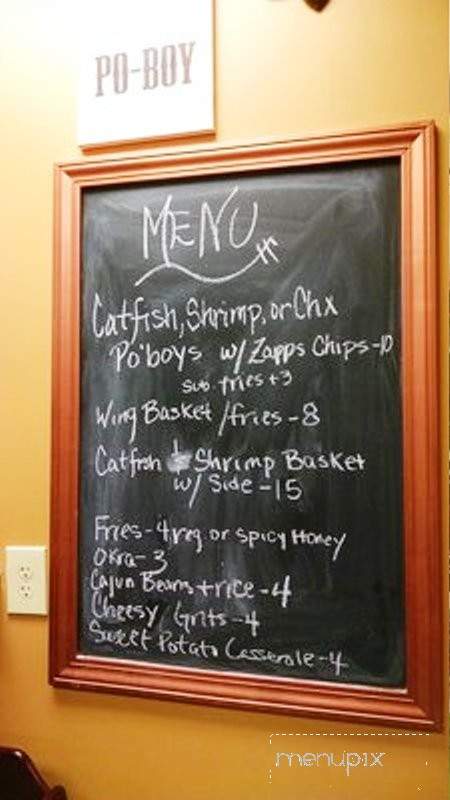 PO-BOY
MENU
Catfish, Shrimp, or Chx
Po'boys w/ Zapps Chips -10
sub fries +3
Wing Basket / fries - 8
Catfish & Shrimp Basket
w/ Side - 15
Fries - 4 reg or spicy Honey
Okra - 3
Cajun Beans + rice - 4
Cheesy Grits - 4
Sweet Potato Casserole - 4
menupix